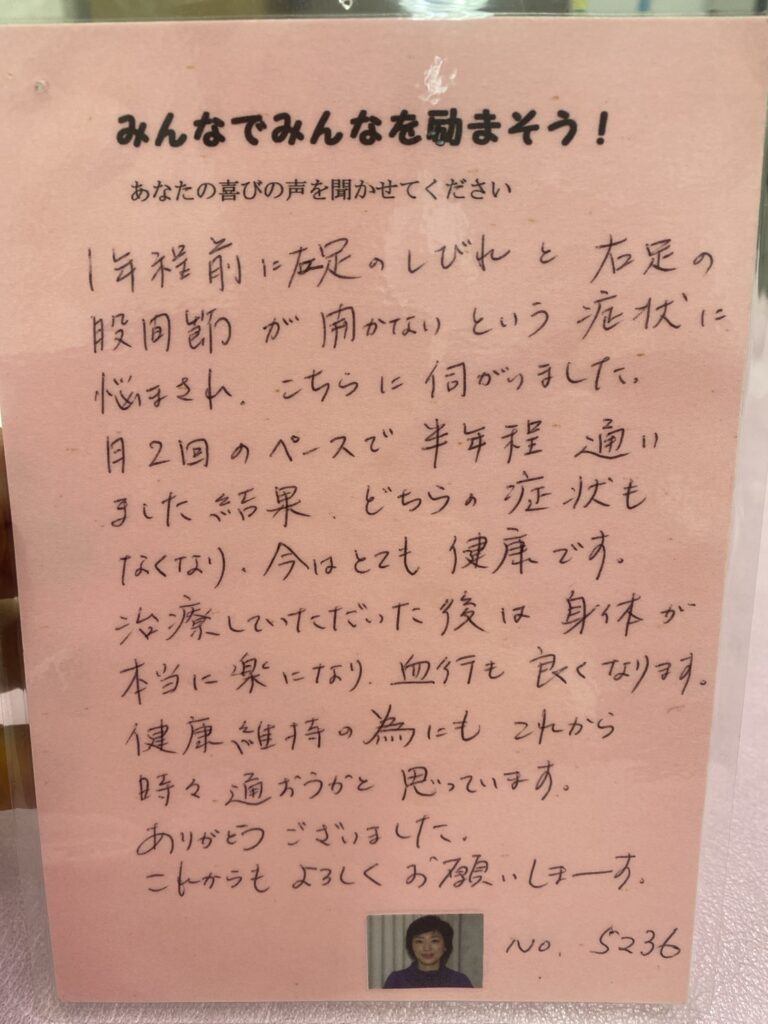 みんなでみんなを励まそう!
あなたの喜びの声を聞かせてください
1年程前に左足のしびれと右足の
股間節が開かないという症状に
悩まされ、こちらに伺がいました。
月2回のペースで半年程通い
ました結果、どちらの症状も
なくなり、今はとても健康です。
治療していただいた後は身体が
本当に楽になり、血行も良くなります。
健康維持の為にもこれから
時々通おうかと思っています。
ありがとうございました。
これからもよろしくお願いしまーす。
No. 5236